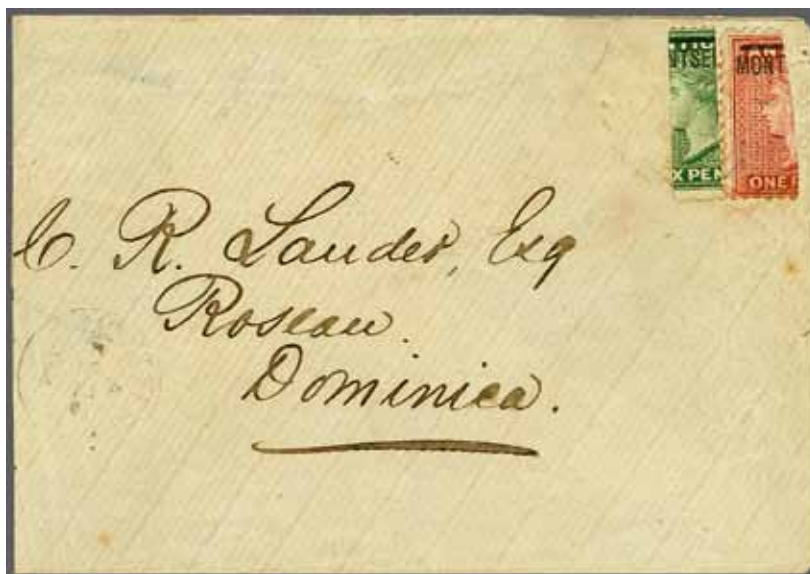 NTSE MONT
X PEN ONE
C. R. Lauder, Esq
Roseau.
Dominica.